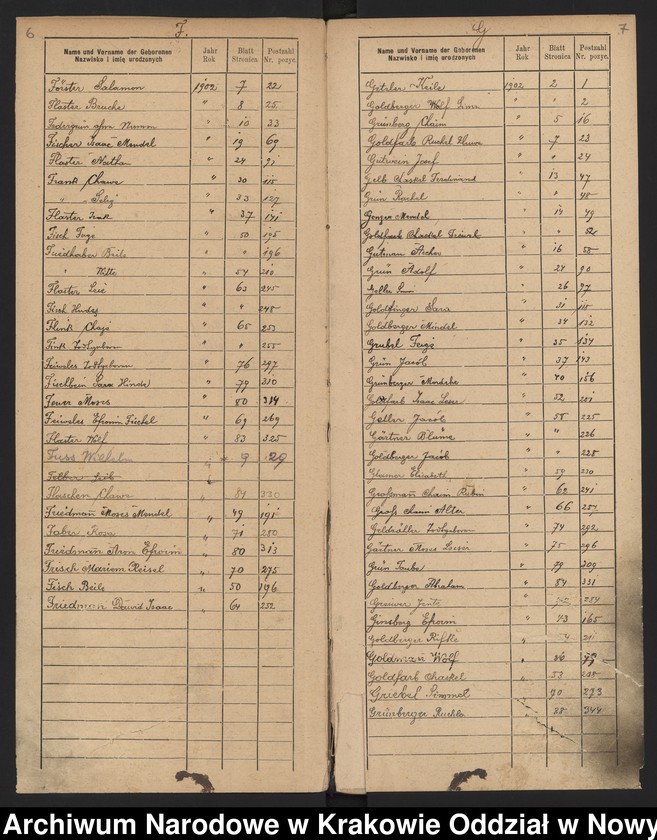 6
F.
Name und Vorname der Geborenen Jahr Blatt Postzahl
Nazwisko i imię urodzonych Rok Stronica Nr. pozyc.
Förster Salamon 1902 7 22
Flaster Beucha " 8 25
" 10 33
Fischer Isaac Mendel " 19 69
Flaster Nathan " 24 91
Frank Chawe " 30 115
" Selig " 33 127
Flaster Izak " 37 141
Fisch Feige " 50 195
Friedhaber Beile " " 196
" Witte " 54 210
Flaster Leie " 63 245
Fisch Hudes " " 248
Flink Chaje " 65 253
Fink " " 255
Feiweles " 76 297
Fischbein Sara Hinde " 79 310
Feuer Moses " 80 314
Feiweles Efroim Fischel " 69 269
Flaster Wolf " 83 325
Fuss Wilhelm " 9 29
Felber Leib
Flaschen Chawe " 84 330
Friedmann Moses Mendel " 49 191
Faber Rosa " 71 280
Friedmann Aron Efroim " 80 313
Frisch Mariem Reisel " 70 275
Fisch Beile " 50 196
Friedman Dawid Isaac " 64 252
G
7
Name und Vorname der Geborenen Jahr Blatt Postzahl
Nazwisko i imię urodzonych Rok Stronica Nr. pozyc.
Getzler Keila 1902 2 1
Goldberger Wolf " " 2
Grünberg Chaim " 5 16
Goldfarb Ruchel " 7 23
Gutwein Josef " " 24
Gelb Chaskel Ferdinand " 13 47
Grün Rachel " " 48
Genger Mendel " 14 49
" " 52
Gutman Ascher " 16 58
Grün Adolf " 24 90
Geller " 26 97
Goldfinger Sara " 31 115
Goldberger Mindel " 34 132
Grubel Feige " 35 134
Grün Jacób " 37 143
Grünberger Mordche " 40 156
Goldfarb Isaac Leser " 52 201
Geller Jacób " 58 225
Gärtner Bluma " " 226
Goldberger Jacób " " 228
Elisabeth " 59 230
Grossmann Chaim Rubin " 62 241
Gross Chaim Alter " 66 257
Geldzähler " 74 292
Gärtner Moses Leiser " 75 296
Grün Taube " 79 309
Goldberger Abraham " 84 331
" 284
Ginsberg Efroim " 43 165
Goldberger Rifke "
Goldman Wolf " 26
Goldfarb Chaskel " 53
Griebel Simmel 70 273
Grünberger Ruchla " 88 344
Archiwum Narodowe w Krakowie Oddział w Nowy